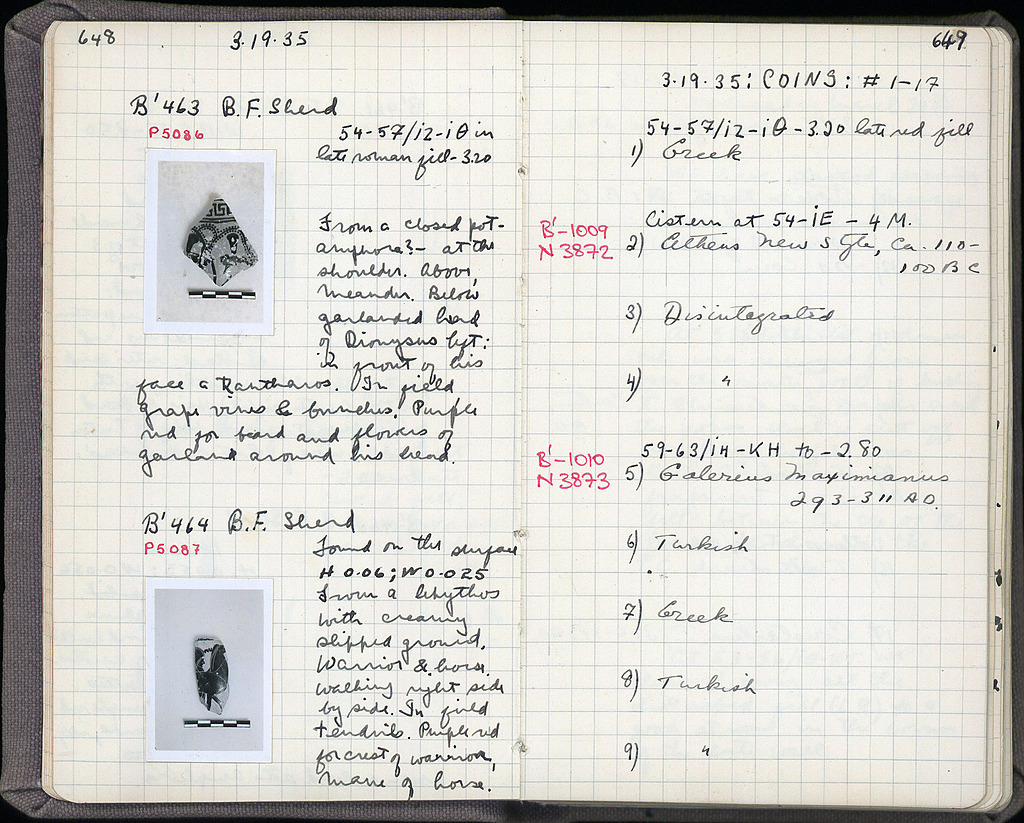 648
3.19.35
B'463 B.F. Sherd
P5086
54-57/ιζ-ιθ in
late roman fill - 3.20
From a closed pot-
amphora? - at the
shoulder. Above,
meander. Below
garlanded head
of Dionysus lft:
in front of his
face a kantharos. In field
grape vines & bunches. Purple
red for beard and flowers of
garland around his head.
B'464 B.F. Sherd
P5087
Found on the surface
H 0.06; W 0.025
From a lekythos
with creamy
slipped ground.
Warrior & horse
walking right side
by side. In field
tendrils. Purple red
for crest of warrior,
mane of horse.
649
3.19.35: COINS: # 1-17
54-57/ιζ-ιθ - 3.20 late red fill
1) Greek
B'-1009
N 3872
Cistern at 54-ιE - 4 M.
2) Athens New Style, Ca. 110-
100 B C
3) Disintegrated
4) "
B'-1010
N 3873
59-63/ιH-KH to -2.80
5) Galerius Maximianus
293-311 AD.
6) Turkish
7) Greek
8) Turkish
9) "